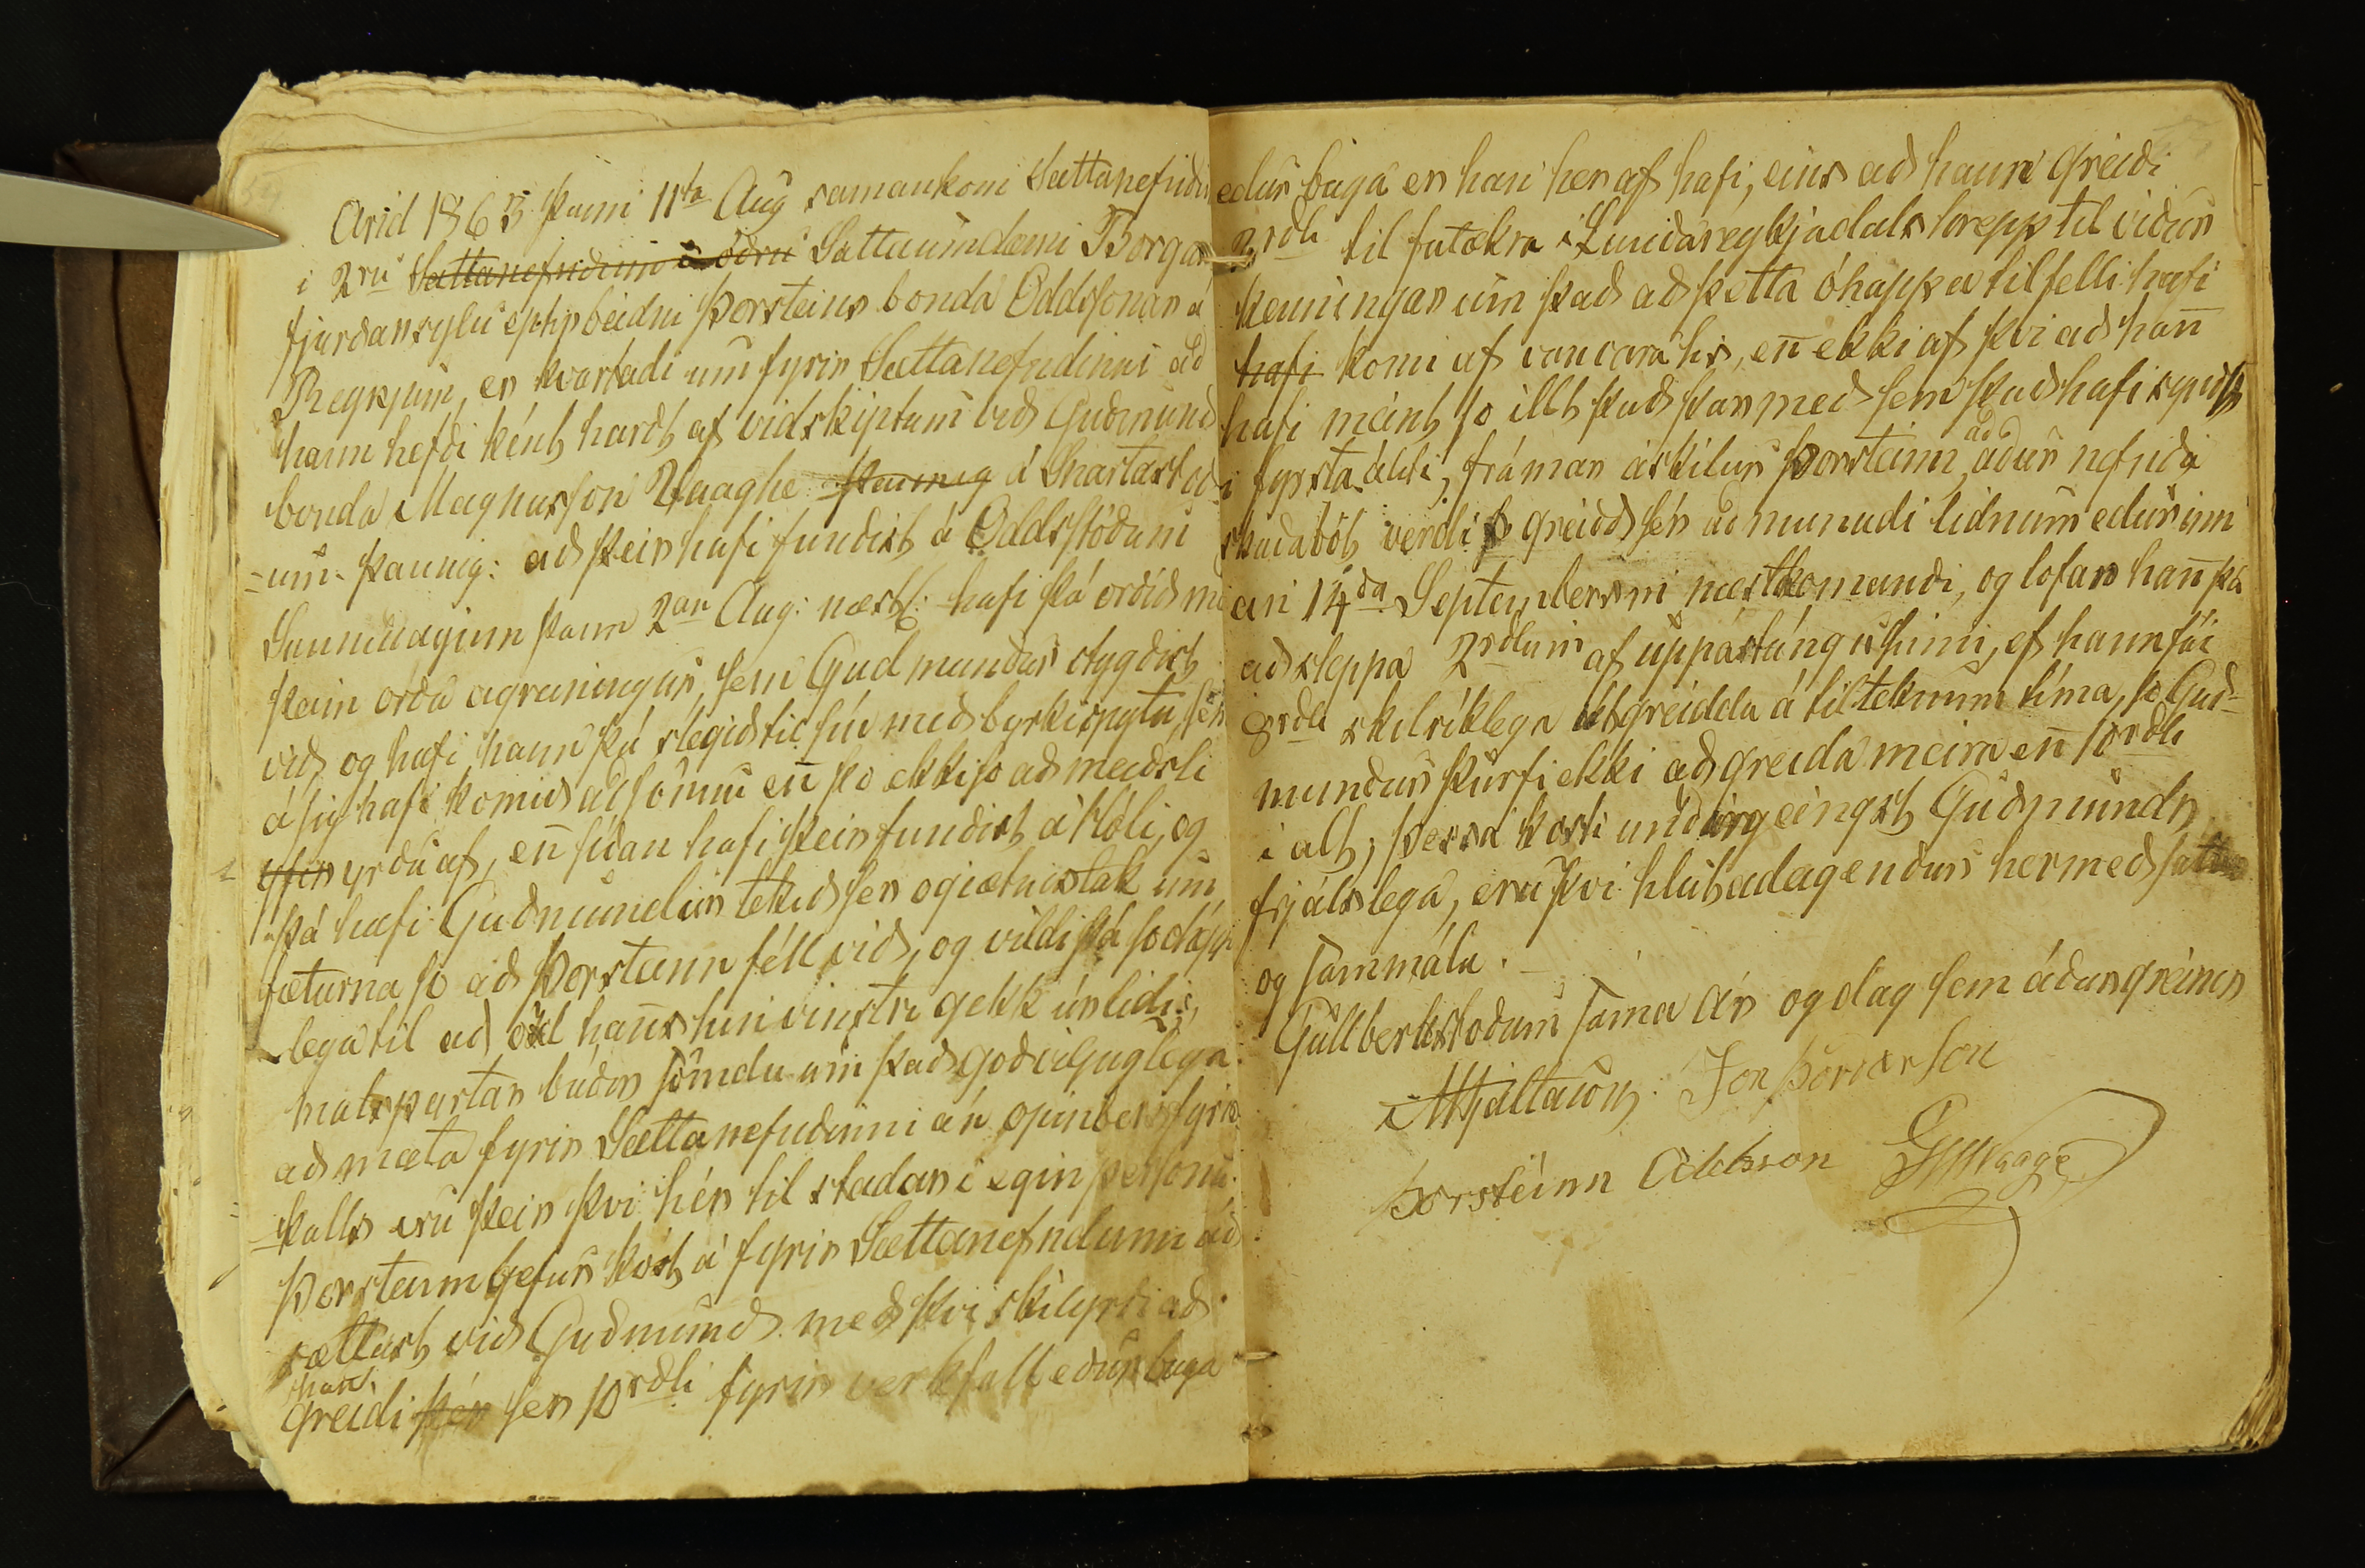 Arid 1863 þann 11ta Aug samankom Sattanefndin
i 2ru Sattanefndinni i ödru Sattaumdæmi Borgar
fjarðarsyslu eptir beidni Þorsteins bonda Oddssonar á
Reykjum, er kvartadi um fyrir Sattanefndinni að
hann hefði ként hardt af vidskiptum við Guðmund
bonda Magnusson Vaaghe þannig á Snartastöð
=um. þannig: að þeir hafi fundist á Oddstöðum
Sunnudaginn þann 2an Aug: næstl: hafi þá orðið m
þeim orða agreiningur, sem Gudmundur stygðist
við og hafi hann þá slegið til sin með byrkispytu, sem
á sig hafi komið að sönnu en þo ekki so að meidsli
yfir yrðu af, en síðan hafi þeir fundist á Hóli, og
þá hafi Guðmundur tekið sér ogiætnistak um
fæturna so að Þorsteinn féll við, og vildi þá so óhapp
=lega til að öxl hans hin vinstri gekk úr lidi,
malspartar báðir sömdu um það goðviljuglega
að mæta fyrir Sættanefndinni án opinbers fyrir
=kalls eru þeir því hér til stadar i egin persónu.
Þorsteinn gefur kost á fyrir Sættanefndinni að
sættast við Guðmund með þvi skilyrði að
hann
greidi þér sér 10rdli fyrir verkfall edur baga
edur baga er han her af hafi, eins að hann greiði
2rdli til fatækra i Lundareykjadals hrepp til viður
kenningar um það að þetta óhappa tilfelli hafi
hafi komi af vanvara hs, en ekki af þvi að han
hafi meint so illt það þar með sem það hafi synst
i fyrsta áliti, framar áskilur Þorsteinn að áður nefnda
skaðabót verdi s greidd sér að manudi lidnum edur inn
an 14da Septembersm næstkomandi, og lofar han þá
að sleppa 2rdlum af uppástúngu sinni, ef hann fái
8rdli skilríklega útgreidda á tilteknum tíma, so Guð=
mundur þurfi ekki að greida meira en 10rdli
i alt, þessa kosti undirgeingst Guðmundr
frjálslega, eru þvi hlutadeigendur hermeð sattir
og sammála.
Gullberkstoðum sama ár og dag sem áður greinir
MHjaltason. Jon Þórðarson
Þorsteinn Oddsson GMVaage